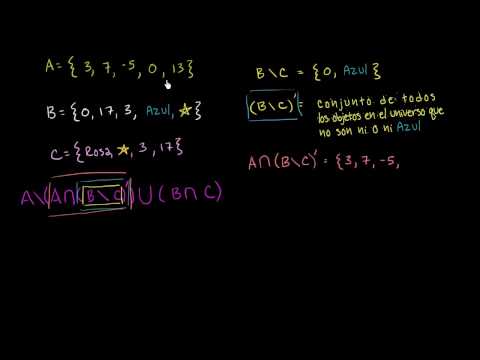 A = { 3, 7, -5, 0, 13}
B = {0, 17, 3, Azul, ☆}
C = {Rosa, ☆, 3, 17}
A\(A∩(B\C)')∪(B∩C)
B\C = {0, Azul}
(B\C)' = conjunto de todos
los objetos en el universo que
no son ni 0 ni Azul
A∩(B\C)' = {3, 7, -5,